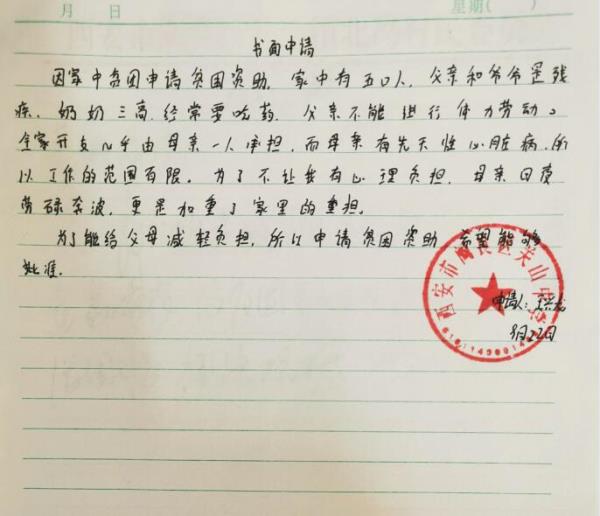 月 日 星期( )
书面申请
因家中贫困申请贫困资助。家中有五口人,父亲和爷爷是残
疾,奶奶三高,经常要吃药。父亲不能进行体力劳动。
全家开支几乎由母亲一人承担,而母亲有先天性心脏病,所
以工作的范围有限。为了不让我有心理负担,母亲日夜
劳碌奔波,更是加重了家里的重担。
为了能给父母减轻负担,所以申请贫困资助,希望能够
批准。
西安市阎良区关山中学
申请人:
9月22日